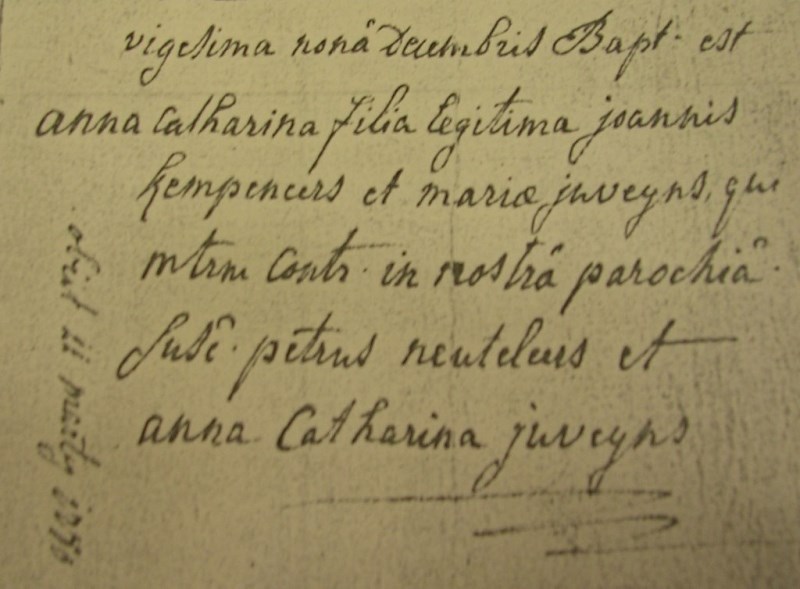 vigesima nonâ Decembris Bapt. est
anna catharina filia legitima joannis
kempeneers et mariæ juveyns, qui
mtrm contr. in nostrâ parochiâ.
Susc. petrus neuteleers et
anna Catharina juveyns
obiit 11